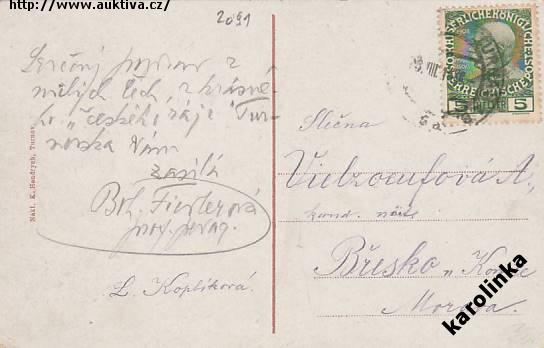 http://www.auktiva.cz/
2091
Srdečný pozdrav z
milých Čech, z krásné-
ho "českého ráje" Tur-
novska Vám
zasílá
Boh. Fiedlerová
L. Koplíková.
Nakl. K. Hendrych, Turnov.
KAISERLICHE KÖNIGLICHE
ÖSTERREICHISCHE
5 HELLER 5
Slečna
A.,
kand. učit.
Břesko u Konice
Morava.
karolinka